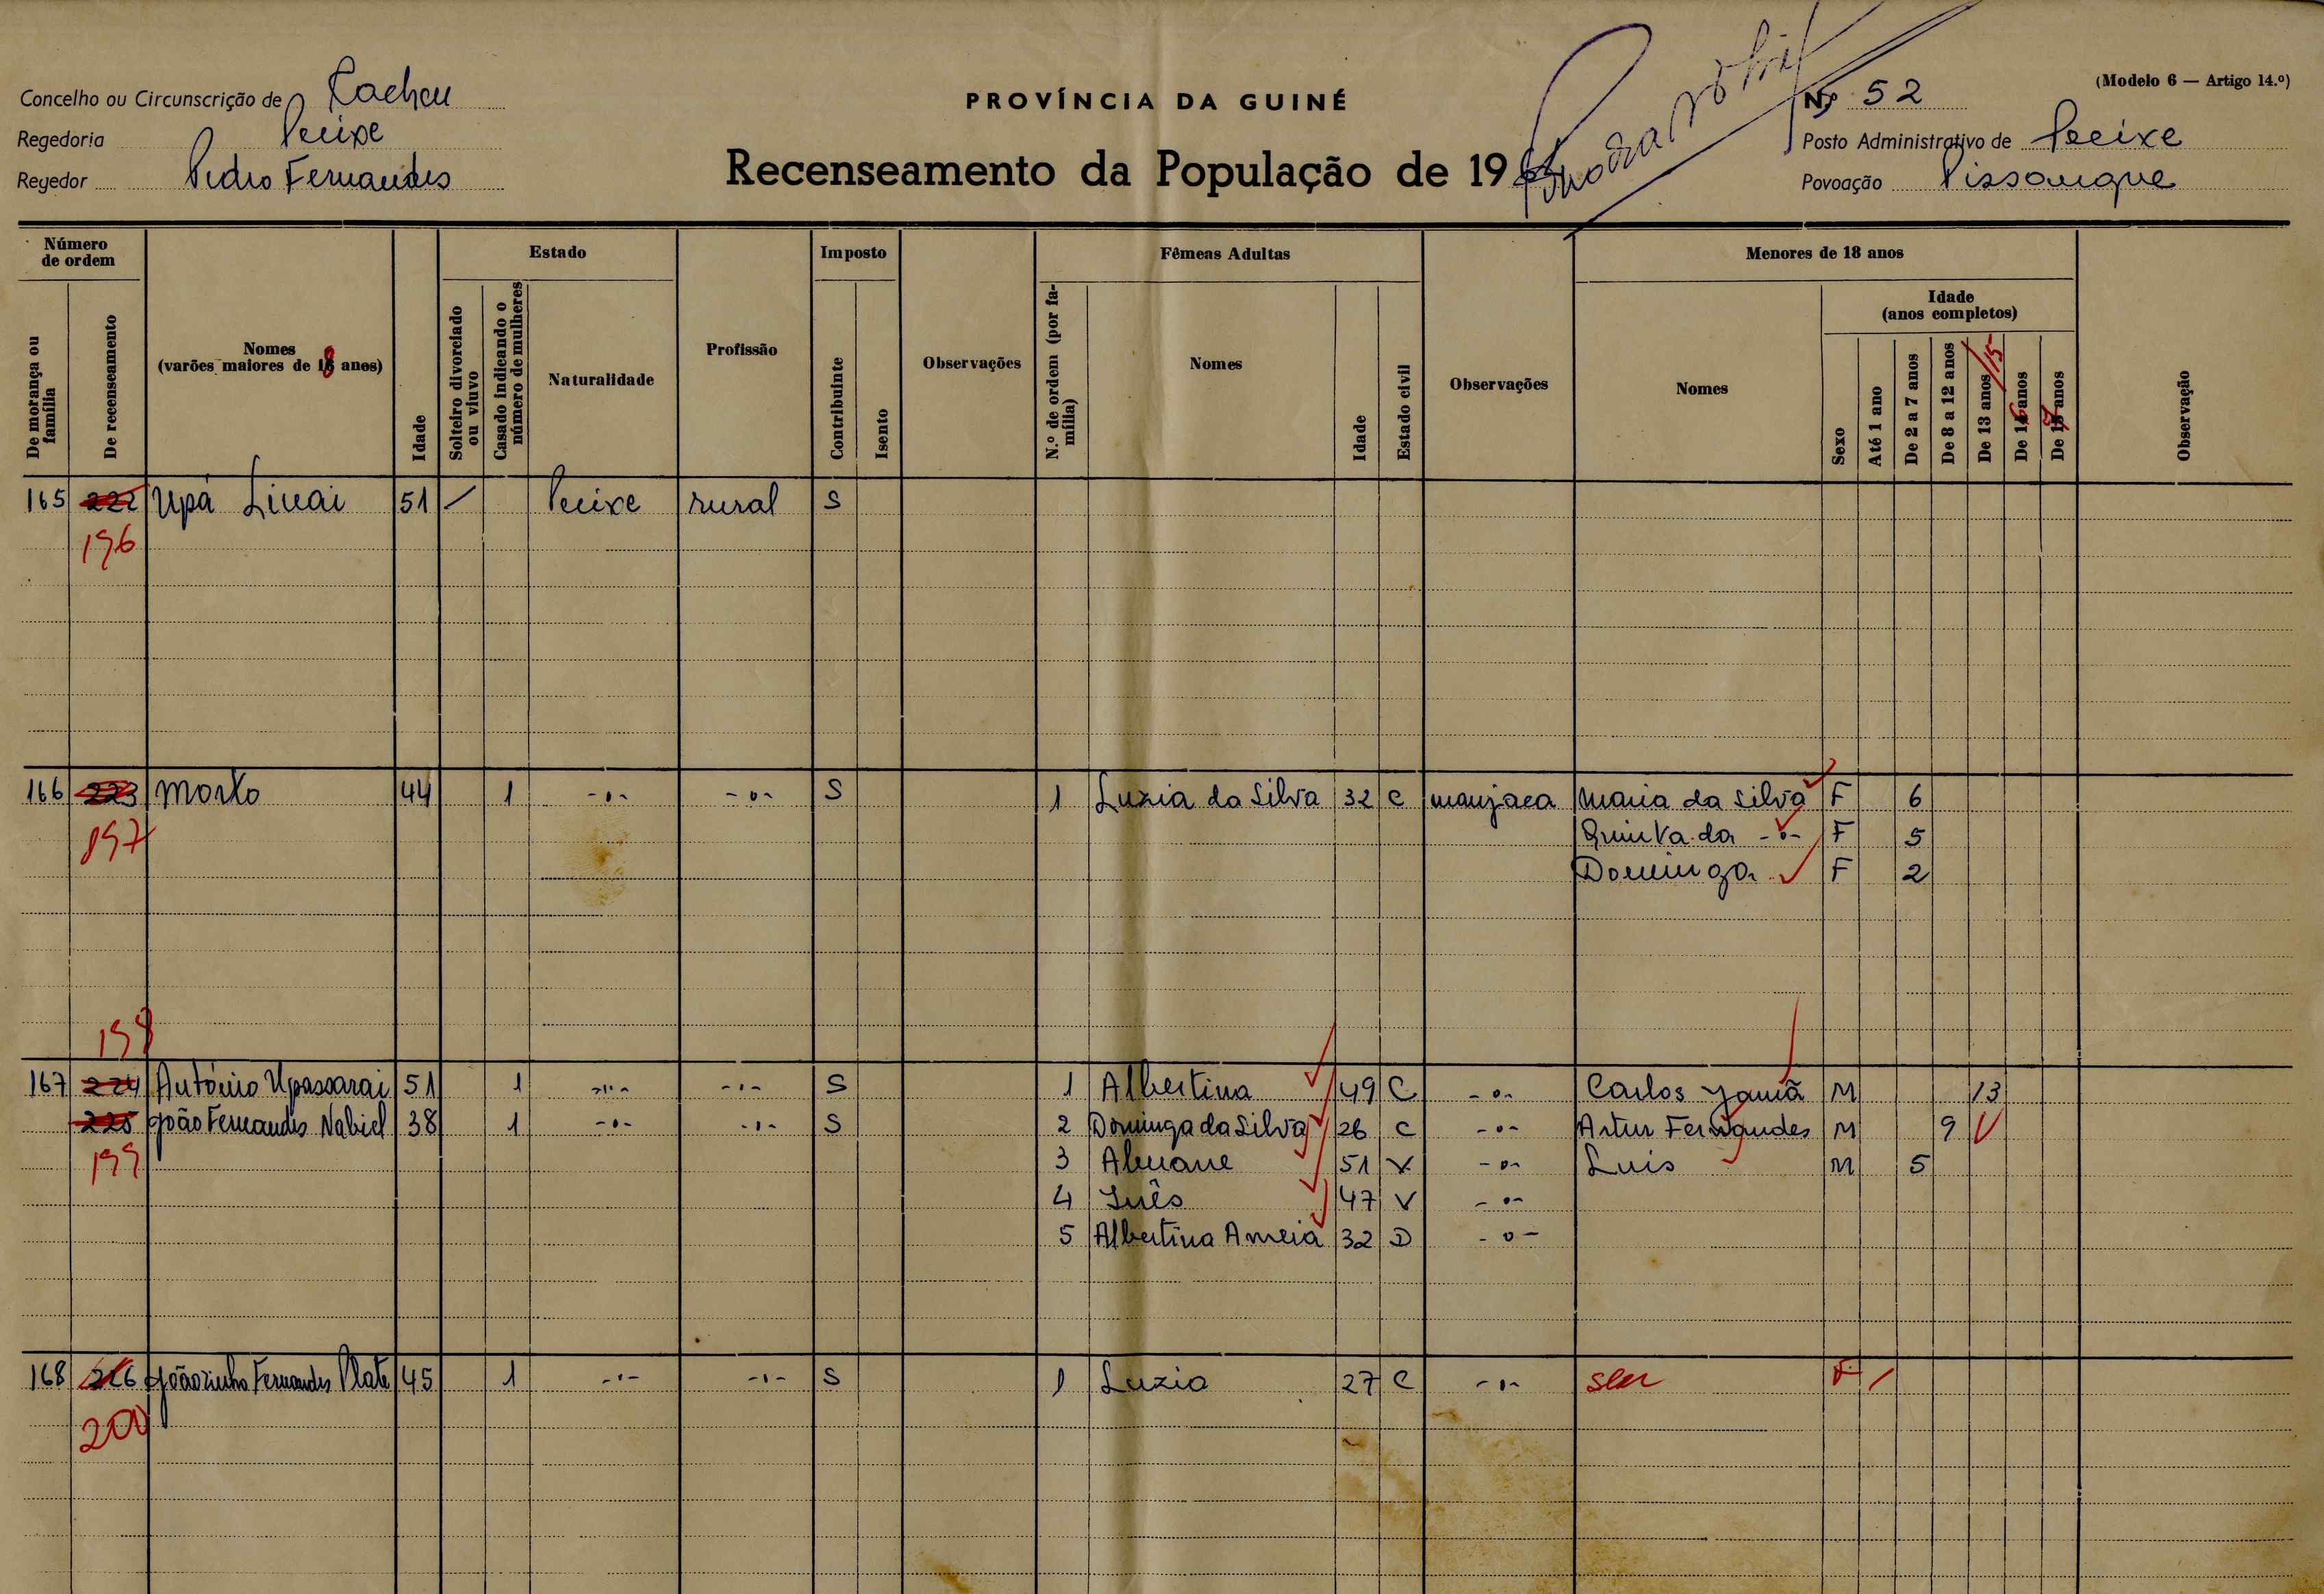 Concelho ou Circunscrição de Cacheu
Regedoria Pecixe
Regedor Pedro Fernandes
PROVÍNCIA DA GUINÉ
Recenseamento da População de 19
(Modelo 6 — Artigo 14.º)
Nº 52
Posto Administrativo de Pecixe
Povoação Pissangue
Número de ordem
De morança ou família
De recenseamento
Nomes (varões maiores de 18 anos)
Idade
Estado
Solteiro divorciado ou viuvo
Casado indicando o número de mulheres
Naturalidade
Profissão
Imposto
Contribuinte
Isento
Observações
Fêmeas Adultas
N.º de ordem (por família)
Nomes
Idade
Estado civil
Observações
Menores de 18 anos
Nomes
Idade (anos completos)
Sexo
Até 1 ano
De 2 a 7 anos
De 8 a 12 anos
De 13 anos /15
De 16 anos
De 17 anos
Observação
165 222 Upá Linai 51 / Pecixe rural S
196
166 223 Morto 44 1 -o- -o- S 1 Luzia da Silva 32 C manjaca Maria da Silva F 6
197 Quinta da -o- F 5
Dominga F 2
198
167 224 António Upassarai 51 1 -"- -"- S 1 Albertina 49 C -o- Carlos Yamã M 13
225 João Fernandes Nabiel 38 1 -o- -o- S 2 Dominga da Silva 26 C -o- Artur Fernandes M 9
199 3 51 V -o- Luis M 5
4 Inês 47 V -o-
5 Albertina Ameia 32 D -o-
168 226 Joãozinho Fernandes Plate 45 1 -"- -"- S 1 Luzia 27 C -"- F /
200